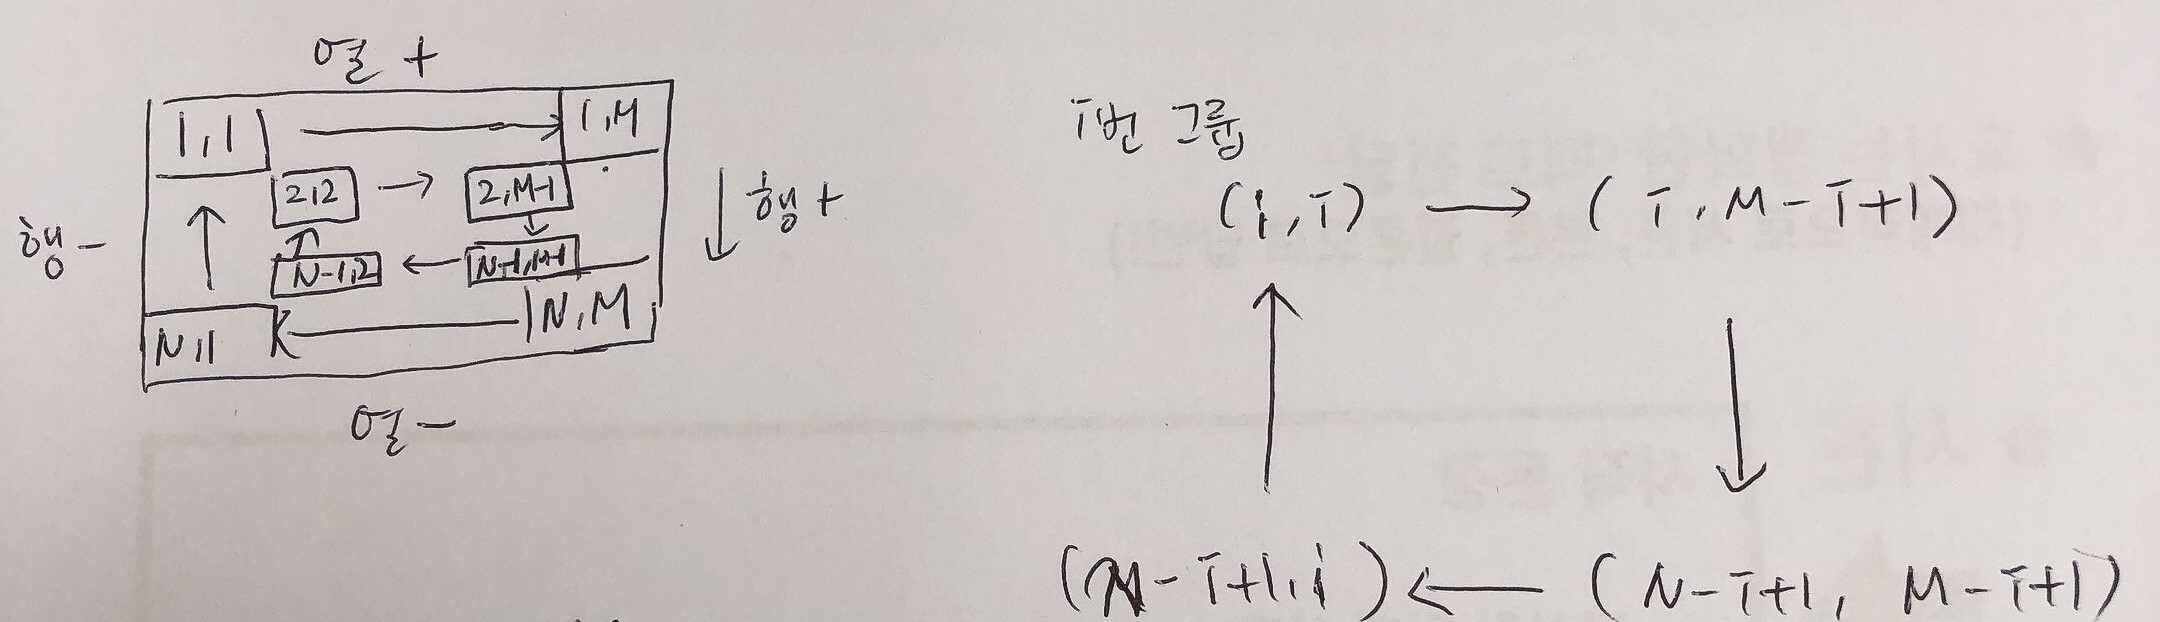 열 +
1,1 → 1,M
2,2 → 2,M-1
행 -
↑ ↓ 행 +
N-1,2 ← N-1,M-1
N,1 ← N,M
열 -
i번 그룹
(i,i) → (i,M-i+1)
↑ ↓
(N-i+1,i) ← (N-i+1, M-i+1)